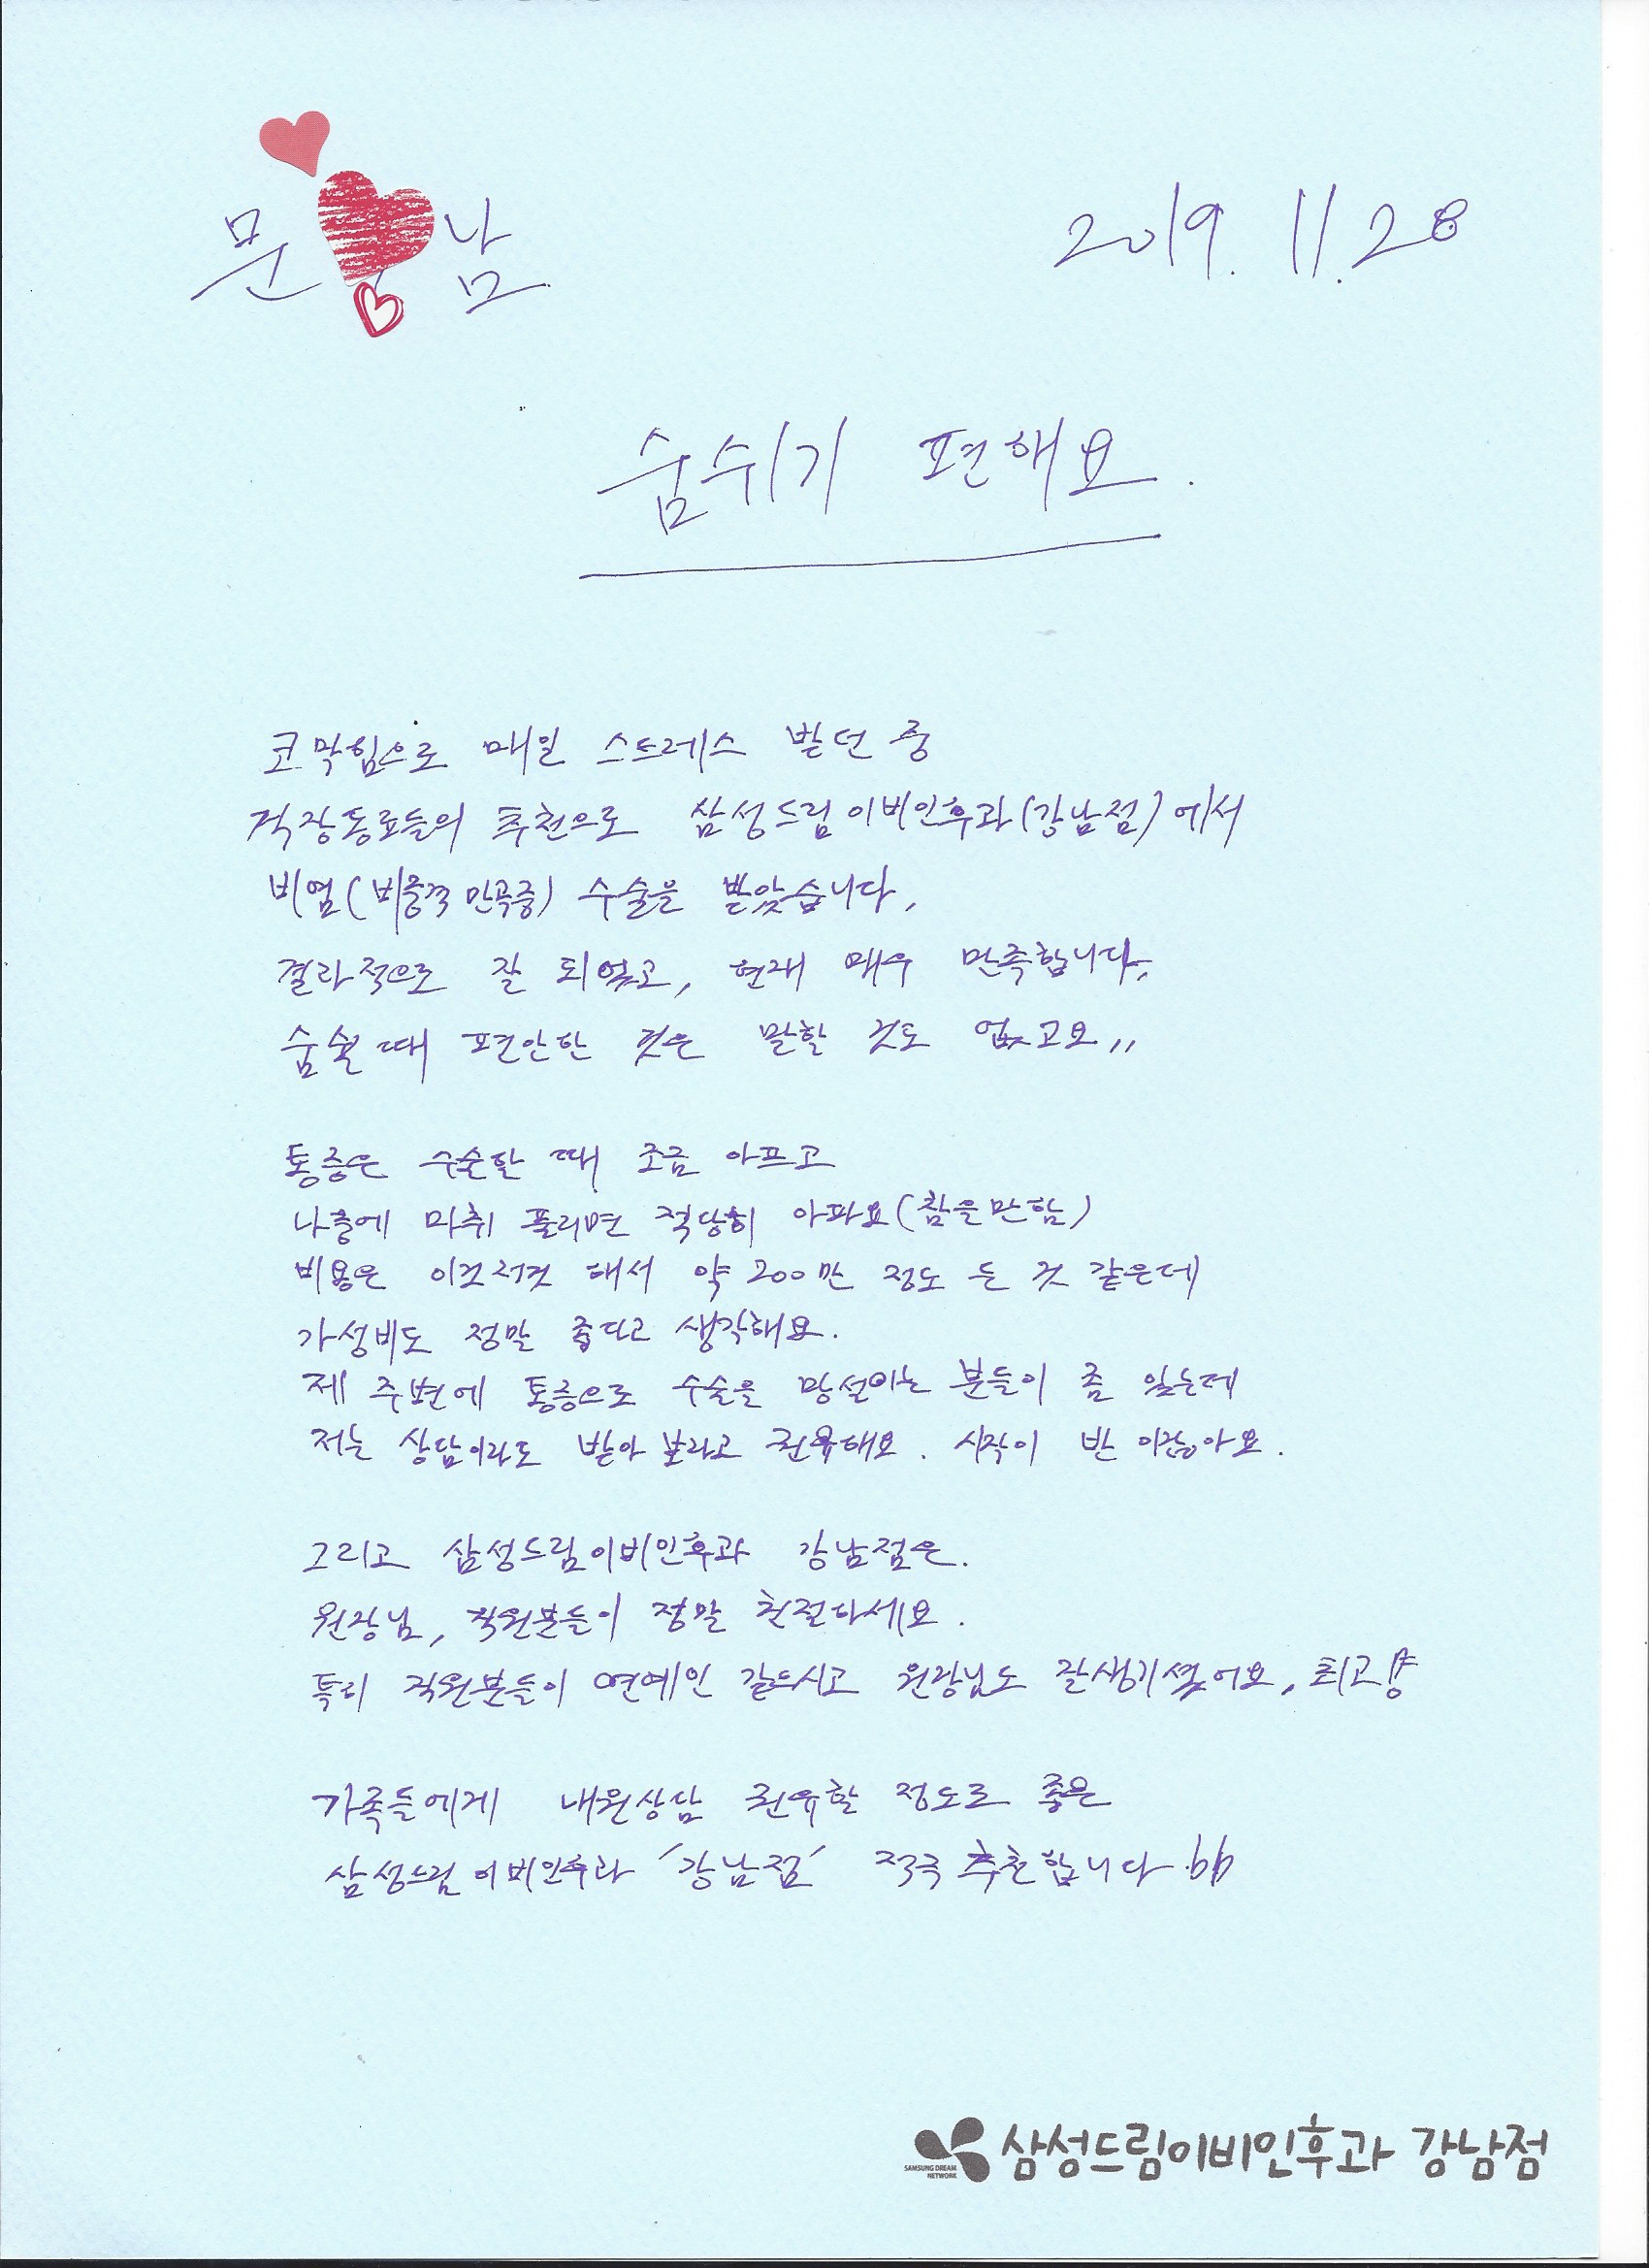 문 남
2019. 11. 28
숨쉬기 편해요.
코막힘으로 매일 스트레스 받던 중
직장동료들의 추천으로 삼성드림이비인후과(강남점)에서
비염(비중격 만곡증) 수술을 받았습니다.
결과적으로 잘 되었고, 현재 매우 만족합니다.
숨쉴 때 편안한 것은 말할 것도 없고요,,
통증은 수술할 때 조금 아프고
나중에 마취 풀리면 적당히 아파요(참을만함)
비용은 이것저것 해서 약 200만 정도 든 것 같은데
가성비도 정말 좋다고 생각해요.
제 주변에 통증으로 수술을 망설이는 분들이 좀 있는데
저는 상담이라도 받아 보라고 권유해요. 시작이 반 이잖아요.
그리고 삼성드림이비인후과 강남점은.
원장님, 직원분들이 정말 친절하세요.
특히 직원분들이 연예인 같으시고 원장님도 잘생기셨어요, 최고!
가족들에게 내원상담 권유할 정도로 좋은
삼성드림이비인후과 '강남점' 적극 추천합니다.bb
SAMSUNG DREAM
NETWORK
삼성드림이비인후과 강남점